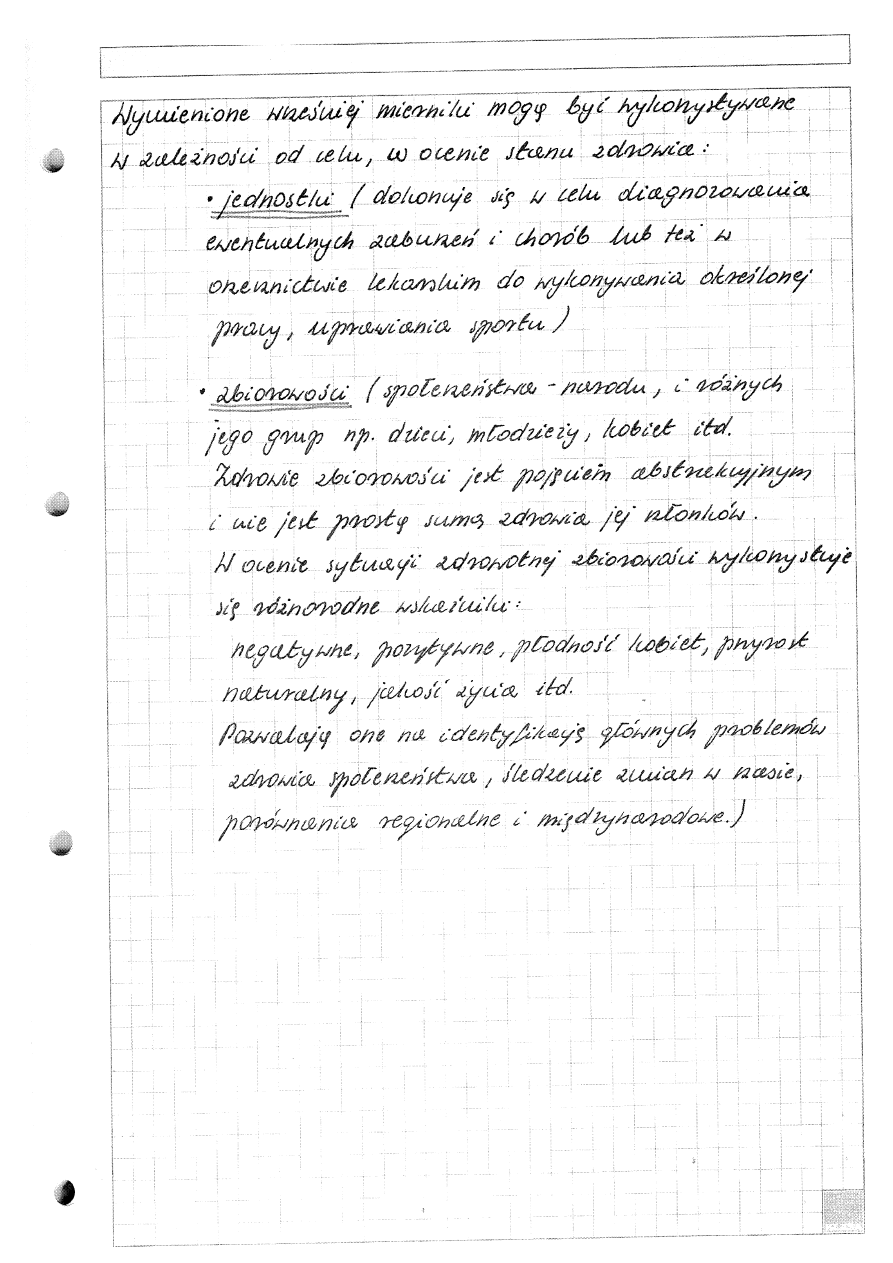 Wymienione wcześniej mierniki mogą być wykorzystywane
w zależności od celu, w ocenie stanu zdrowia:
• jednostki (dokonuje się w celu diagnozowania
ewentualnych zaburzeń i chorób lub też w
orzecznictwie lekarskim do wykonywania określonej
pracy, uprawiania sportu)
• zbiorowości (społeczeństwa - narodu, i różnych
jego grup np. dzieci, młodzieży, kobiet itd.
Zdrowie zbiorowości jest pojęciem abstrakcyjnym
i nie jest prostą sumą zdrowia jej członków.
W ocenie sytuacji zdrowotnej zbiorowości wykorzystuje
się różnorodne wskaźniki:
negatywne, pozytywne, płodność kobiet, przyrost
naturalny, jakość życia itd.
Pozwalają one na identyfikację głównych problemów
zdrowia społeczeństwa, śledzenie zmian w czasie,
porównania regionalne i międzynarodowe.)